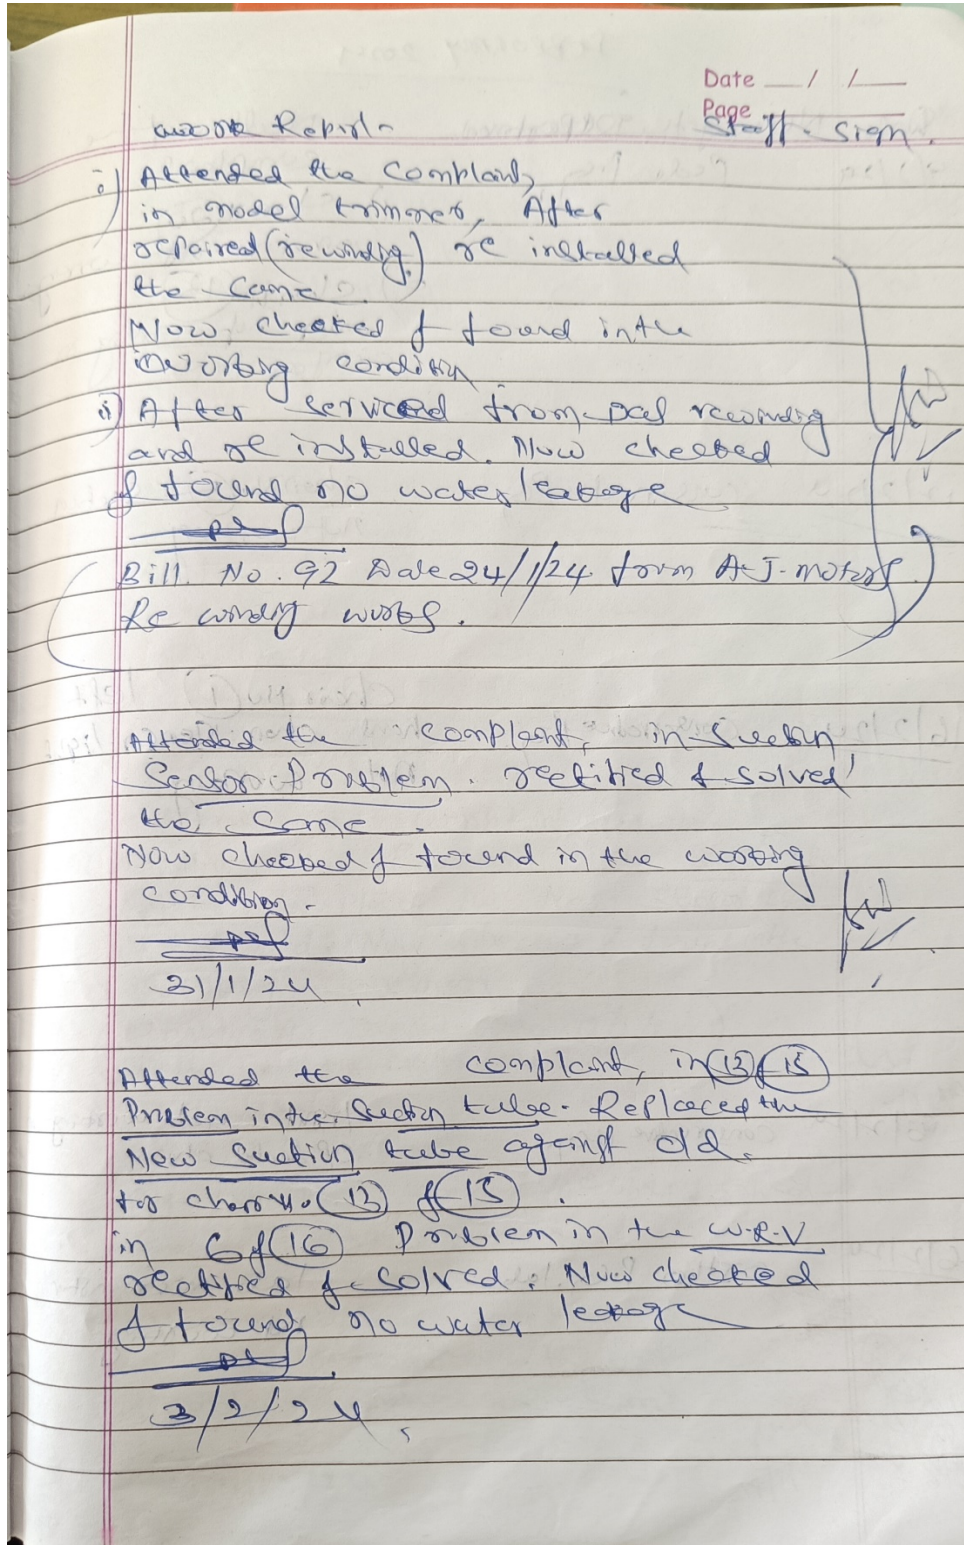 Date __/__/__
Page
Work Report Staff. Sign.
i) Attended the Complaint,
in model trimmer, After
repaired (rewinding) re installed
the Same.
Now, checked & found in the
working condition
ii) After serviced from rewinding
and re installed. Now checked
& found no water leakage
Bill. No. 92 Date 24/1/24 from A.J. motors
Re winding works.
Attended the complaint, in Suction
Sensor Problem. rectified & solved
the Same.
Now checked & found in the working
condition.
31/1/24
Attended the complaint, in 13 & 15
Problem in the Suction tube. Replaced the
New Suction tube against old.
for chair No. 13 & 15.
in 6 & 16 Problem in the W.R.V
rectified & Solved. Now checked
& found no water leakage
3/2/24